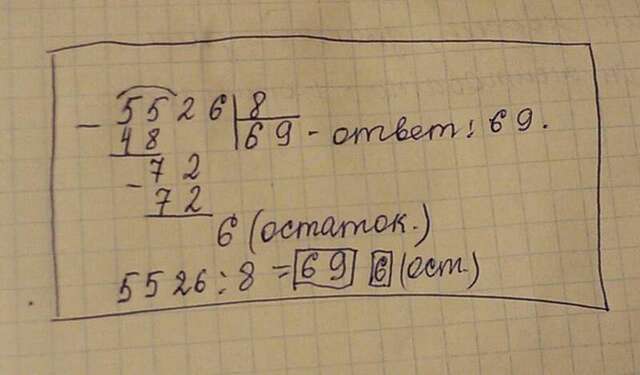 - 5526 | 8
48 | 69 - ответ: 69.
- 72
72
6 (остаток.)
5526 : 8 = 69 6 (ост.)